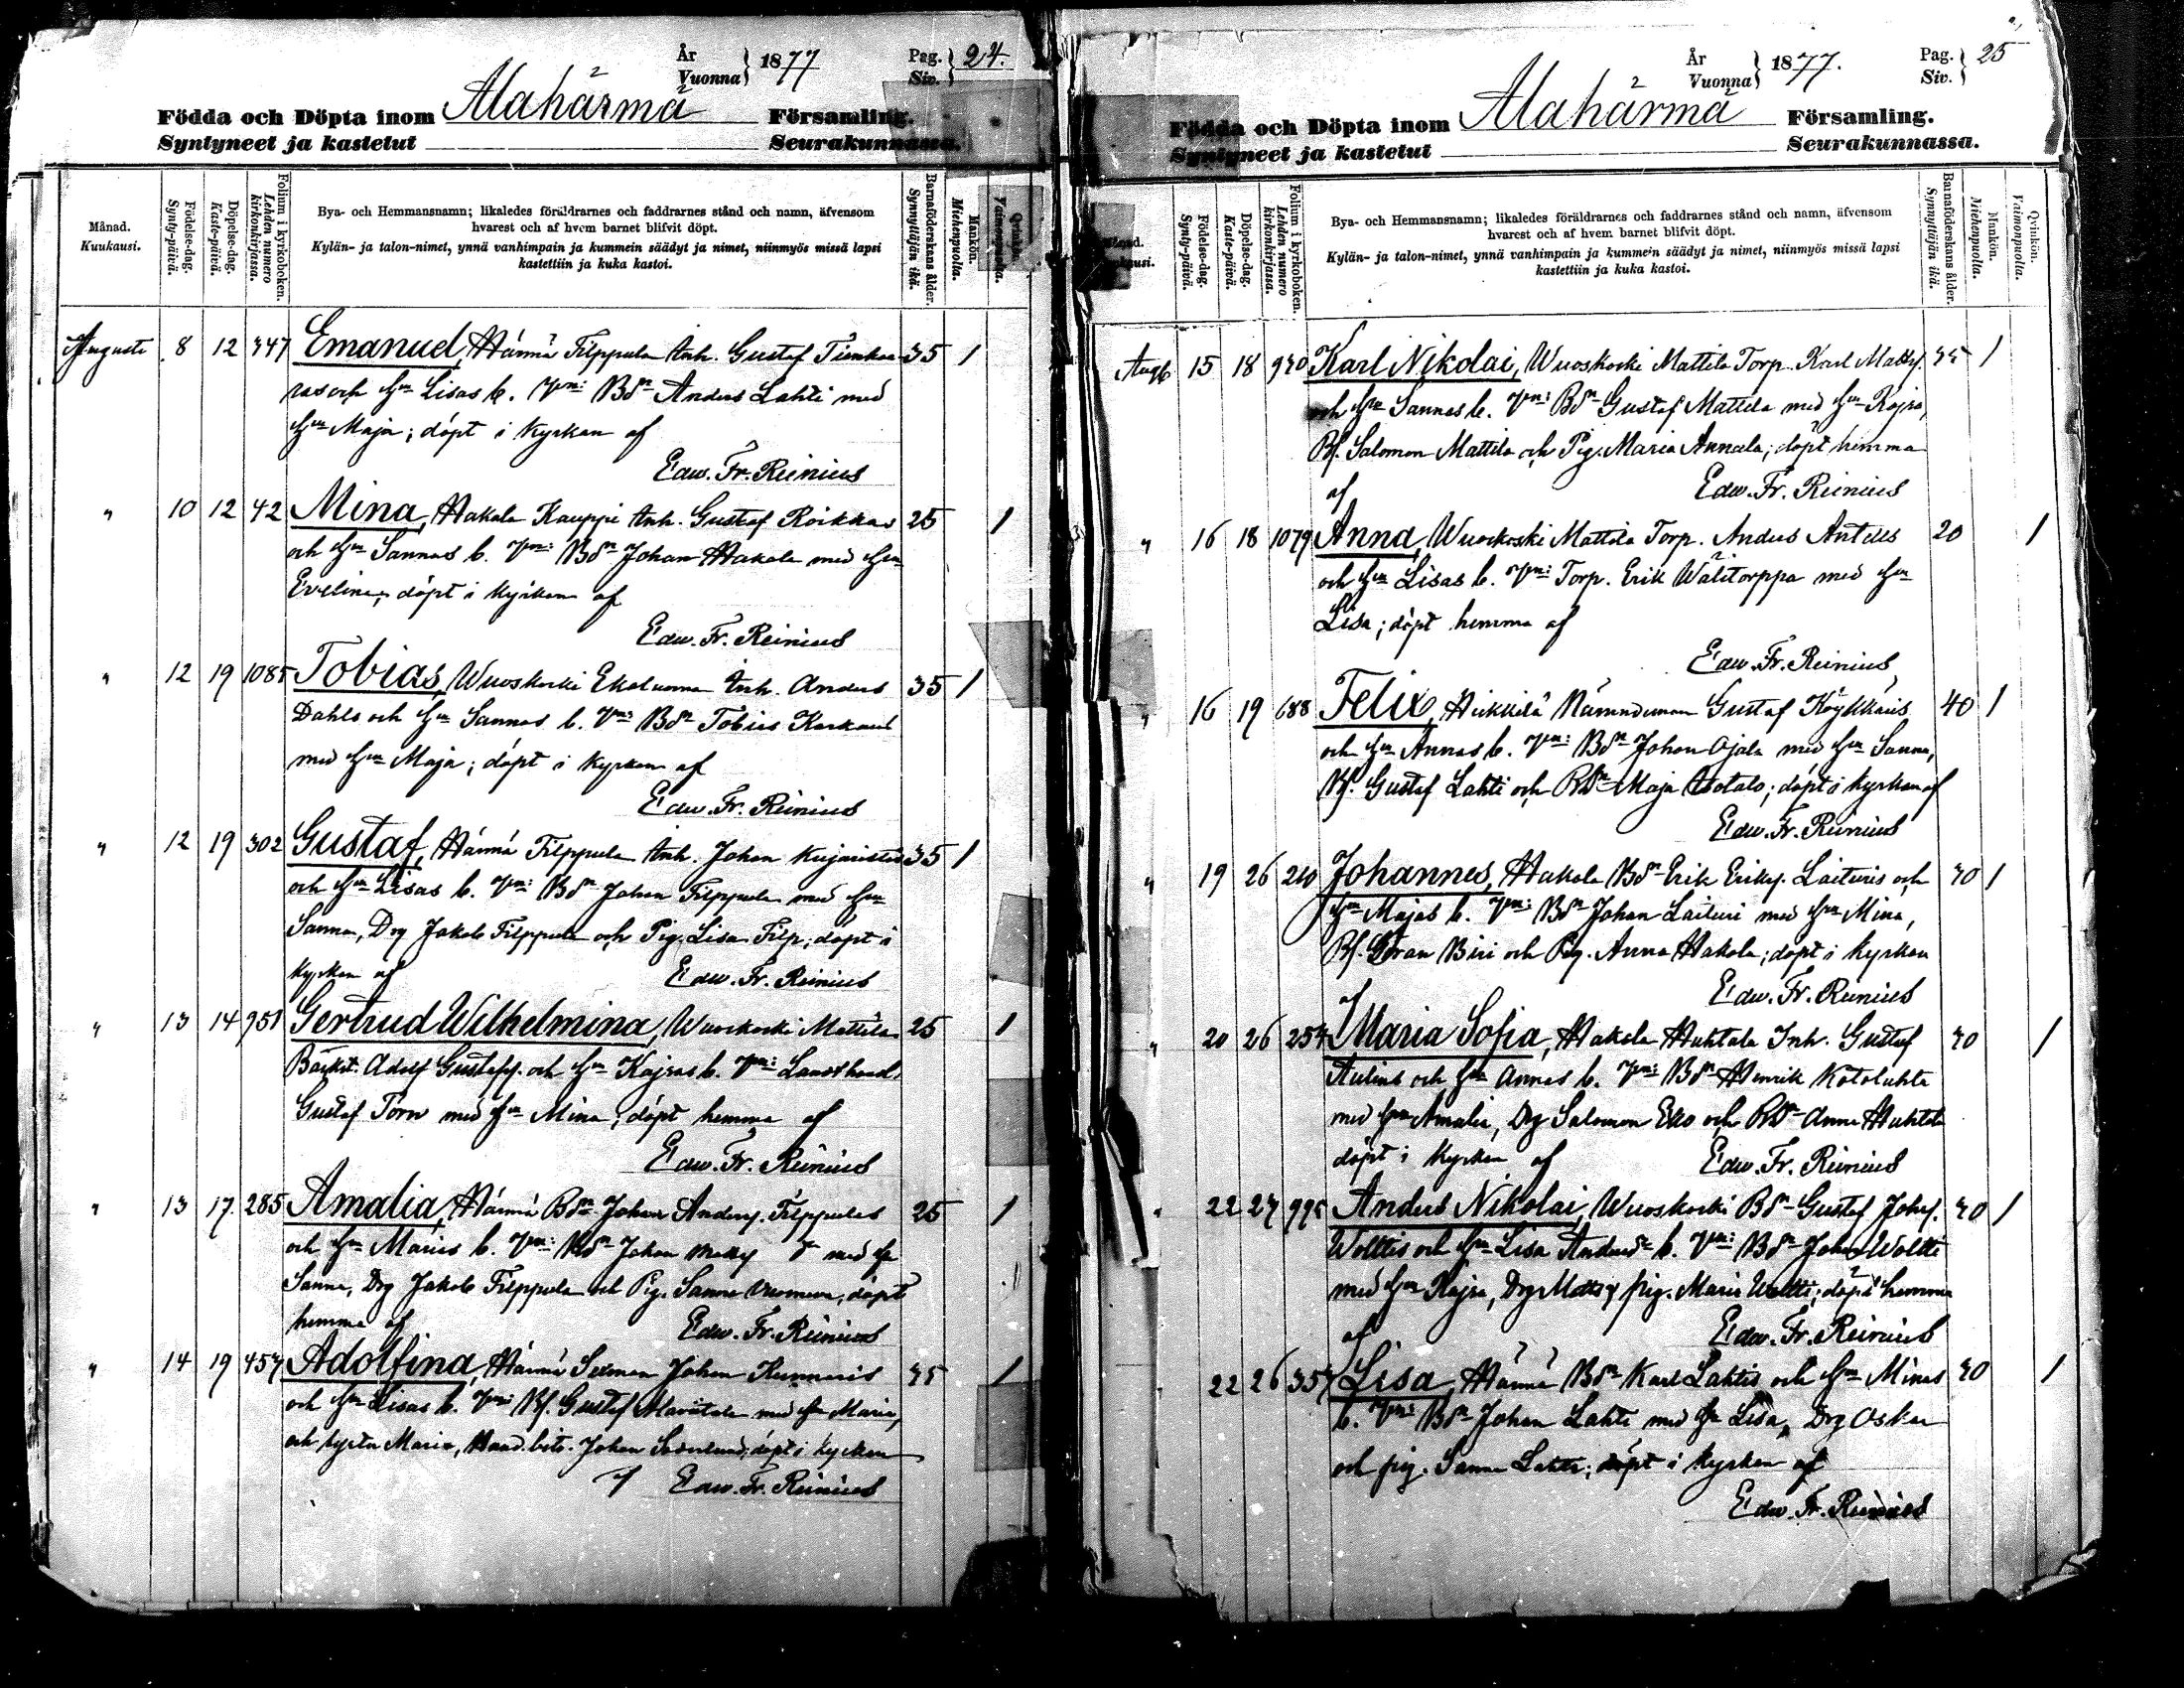 År
Vuonna } 1877
Pag.
Siv. } 24.
Födda och Döpta inom Alahärmä Församling.
Syntyneet ja kastetut Seurakunnassa.
Månad.
Kuukausi.
Födelse-dag.
Synty-päivä.
Döpelse-dag.
Kaste-päivä.
Folium i kyrkoboken.
Lehden numero kirkonkirjassa.
Bya- och Hemmansnamn; likaledes föräldrarnes och faddrarnes stånd och namn, äfvensom
hvarest och af hvem barnet blifvit döpt.
Kylän- ja talon-nimet, ynnä vanhimpain ja kummein säädyt ja nimet, niinmyös missä lapsi
kastettiin ja kuka kastoi.
Barnaföderskans ålder.
Synnyttäjän ikä.
Mankön.
Miehenpuolta.
Qvinkön.
Vaimonpuolta.
Augusti 8 12 347 Emanuel, Härmä Filppula Inh. Gustaf 35 1
och Hu Lisas b. Vm: Bdn Anders Lahti med
Hu Maja; döpt i Kyrkan af
Edw. Fr. Reinius
" 10 12 42 Mina, Hakala Kauppi Inh. Gustaf Roikkas 25 1
och Hu Sannas b. Vm: Bdn Johan Hakala med Hu
Evelina, döpt i Kyrkan af
Edw. Fr. Reinius
" 12 19 1085 Tobias, Wuoskoski Ekoluoma Inh. Anders 35 1
Dahls och Hu Sannas b. Vm: Bdn Tobias
med Hu Maja; döpt i Kyrkan af
Edw. Fr. Reinius
" 12 19 302 Gustaf, Härmä Filppula Inh. Johan 35 1
och Hu Lisas b. Vm: Bdn Johan Filppula med Hu
Sanna, Drg Jakob Filppula och Pig. Lisa Filp; döpt i
Kyrkan af Edw. Fr. Reinius
" 13 14 951 Gertrud Wilhelmina, Wuoskoski Mattila 25 1
Adolf Gustafss. och Hu Kajsas b. Vm: Landthandl.
Gustaf Törn med Hu Mina; döpt hemma af
Edw. Fr. Reinius
" 13 17. 285 Amalia, Härmä Bdn Johan Anderss. Filppulas 25 1
och Hu Marias b. Vm: Bdn Johan Matts med Hu
Sanna, Drg Jakob Filppula och Pig. Sanna, döpt
hemma af Edw. Fr. Reinius
" 14 19 457 Adolfina, Härmä Johan 35 1
och Hu Lisas b. Vm: Bf. Gustaf med Hu Maria,
och Maria, Johan döpt i kyrkan
af Edw. Fr. Reinius
År
Vuonna } 1877.
Pag.
Siv. } 25
Födda och Döpta inom Alahärmä Församling.
Syntyneet ja kastetut Seurakunnassa.
Födelse-dag.
Synty-päivä.
Döpelse-dag.
Kaste-päivä.
Folium i kyrkoboken.
Lehden numero kirkonkirjassa.
Bya- och Hemmansnamn; likaledes föräldrarnes och faddrarnes stånd och namn, äfvensom
hvarest och af hvem barnet blifvit döpt.
Kylän- ja talon-nimet, ynnä vanhimpain ja kummein säädyt ja nimet, niinmyös missä lapsi
kastettiin ja kuka kastoi.
Barnaföderskans ålder.
Synnyttäjän ikä.
Mankön.
Miehenpuolta.
Qvinkön.
Vaimonpuolta.
Aug. 15 18 930 Karl Nikolai, Wuoskoski Mattila Torp. Karl Mattss. 35 1
och Hu Sannas b. Vm: Bdn Gustaf Mattila med Hu Kajsa,
Bf. Salomon Mattila och Pig. Maria Annala; döpt hemma
af Edw. Fr. Reinius
" 16 18 1079 Anna, Wuoskoski Mattila Torp. Anders Antilas 20 1
och Hu Lisas b. Vm: Torp. Erik Wälitorppa med Hu
Lisa; döpt hemma af
Edw. Fr. Reinius
" 16 19 688 Felix, Heikkilä Nämndeman Gustaf Köykkäis 40 1
och Hu Annas b. Vm: Bdn Johan Ojala med Hu Sanna,
Bf. Gustaf Lahti och Maja Isotalo; döpt i Kyrkan af
Edw. Fr. Reinius
" 19 26 210 Johannes, Hakola Bdn Erik Erikss. Laituris och 30 1
Hu Majas b. Vm: Bdn Johan Laituri med Hu Mina,
Bf. Göran Biri och Pig. Anna Hakola; döpt i Kyrkan
af Edw. Fr. Reinius
" 20 26 254 Maria Sofia, Hakola Huhtala Inh. Gustaf 30 1
och Hu Annas b. Vm: Bdn Henrik Kotoluhta
med Hu Amalia, Drg Salomon och Anna Huhtala
döpt i Kyrkan af Edw. Fr. Reinius
" 22 27 995 Anders Nikolai, Wuoskoski Bdn Gustaf Johss. 30 1
Wolttis och Hu Lisa b. Vm: Bdn Johan Woltti
med Hu Kajsa, Drg Matts o pig. Maria Woltti; döpt hemma
af Edw. Fr. Reinius
" 22 26 357 Lisa, Härmä Bdn Karl Lahtis och Hu Minas 30 1
b. Vm: Bdn Johan Lahti med Hu Lisa, Drg Oskar
och pig. Sanna Lahti; döpt i Kyrkan af
Edw. Fr. Reinius